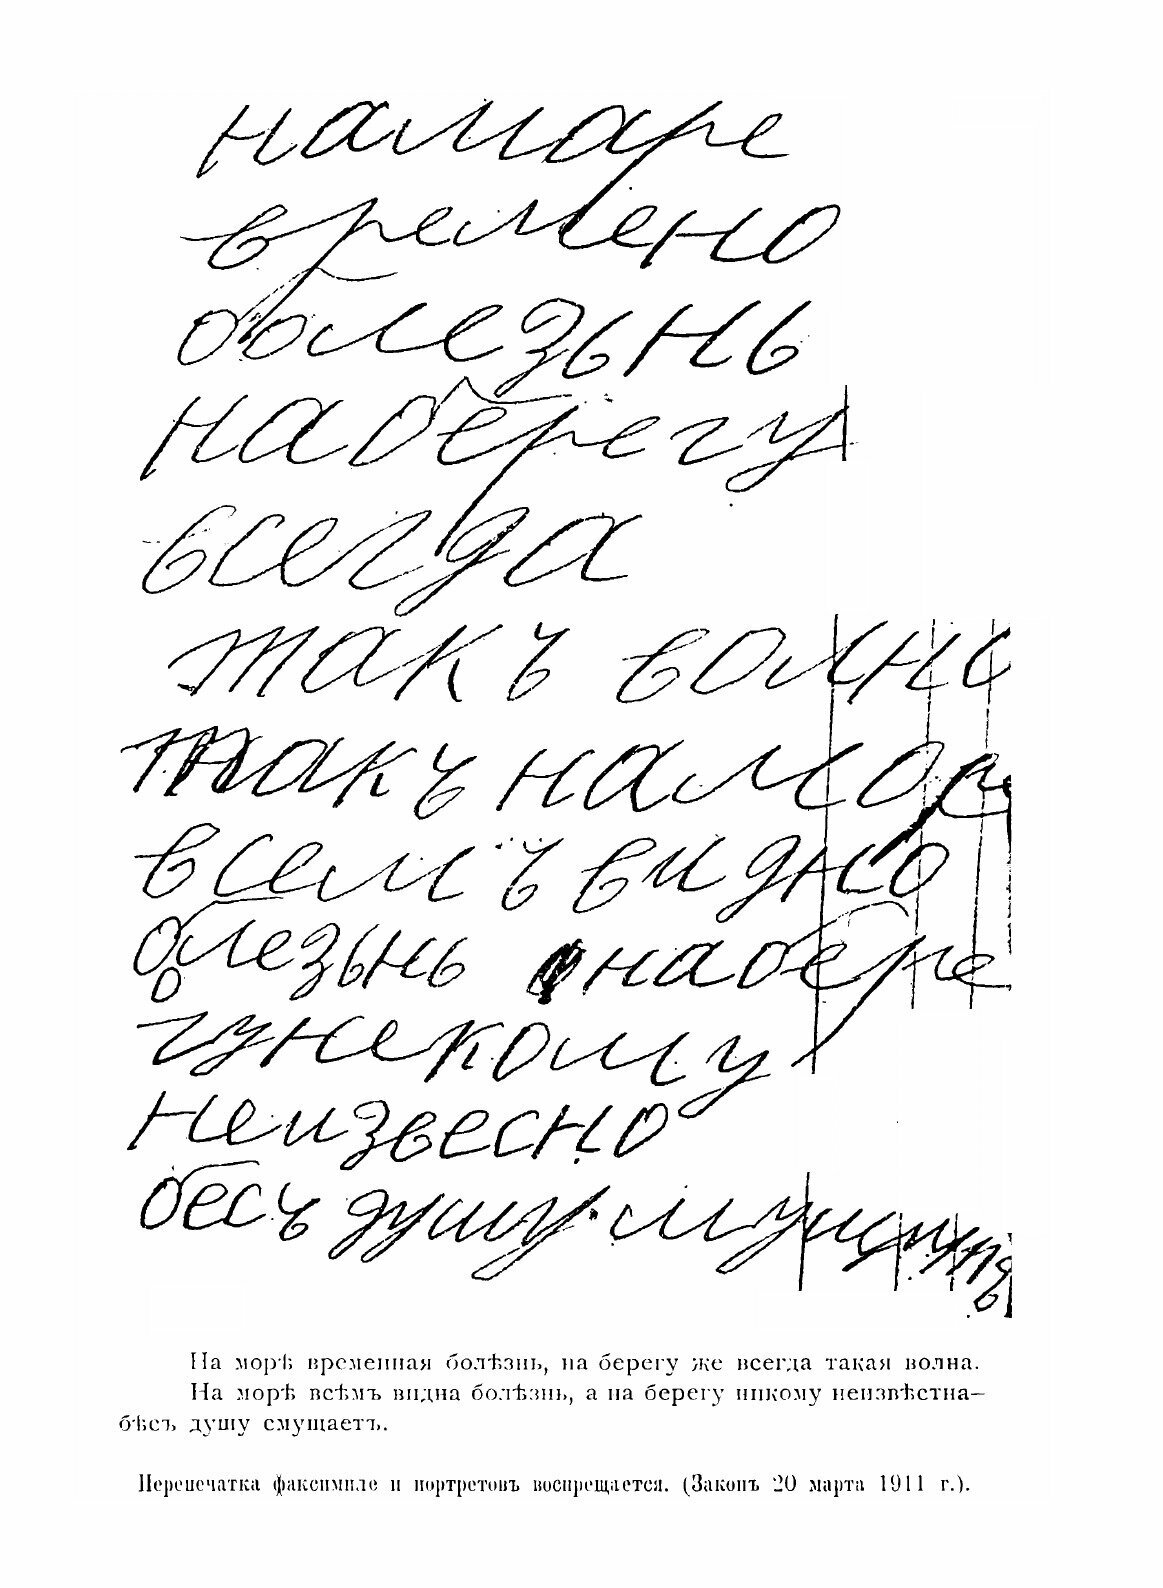 намаре
времено
болезьнь
наберегу
всегда
такъ волнь
такъ наморе
всемъ видно
болезьнь набере
гунекому
неизвесно
бесъ душу мущщаитъ
На морѣ временная болѣзнь, на берегу же всегда такая волна.
На морѣ всѣмъ видна болѣзнь, а на берегу никому неизвѣстна—
бѣсъ душу смущаетъ.
Перепечатка факсимиле и портретовъ воспрещается. (Законъ 20 марта 1911 г.).